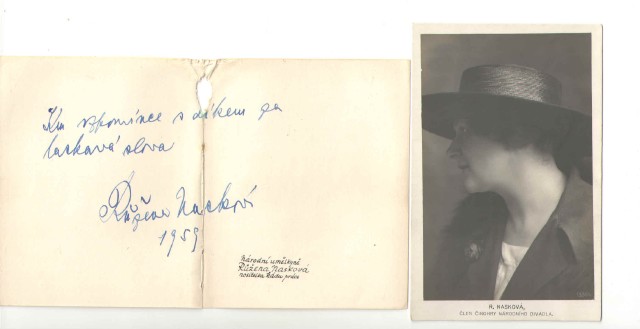 Ku vzpomínce s díkem za
laskavá slova
Růžena Nasková
1959
Národní umělkyně
Růžena Nasková
nositelka Řádu práce
R. NASKOVÁ,
ČLEN ČINOHRY NÁRODNÍHO DIVADLA.